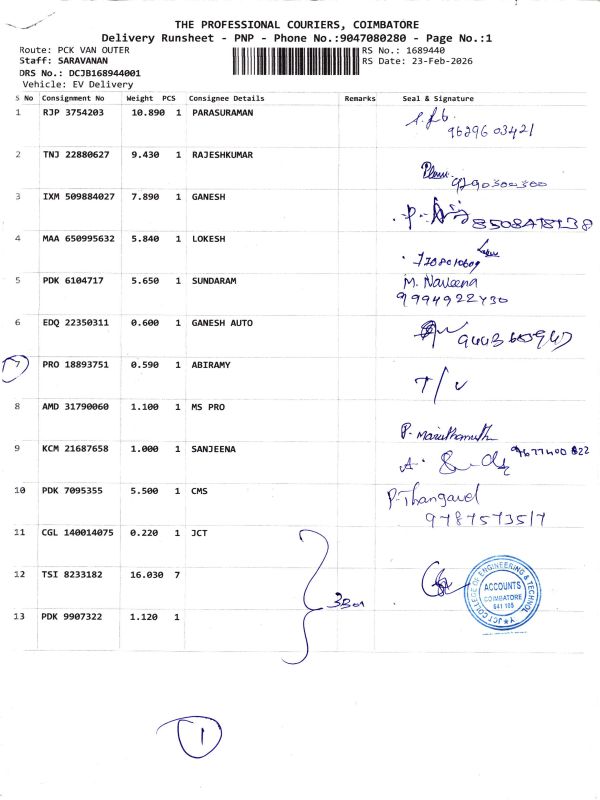 THE PROFESSIONAL COURIERS, COIMBATORE
Delivery Runsheet - PNP - Phone No.:9047080280 - Page No.:1
Route: PCK VAN OUTER RS No.: 1689440
Staff: SARAVANAN RS Date: 23-Feb-2026
DRS No.: DCJB168944001
Vehicle: EV Delivery
S No Consignment No Weight PCS Consignee Details Remarks Seal & Signature
1 RJP 3754203 10.890 1 PARASURAMAN
9629603421
2 TNJ 22880627 9.430 1 RAJESHKUMAR
3 IXM 509884027 7.890 1 GANESH
4 MAA 650995632 5.840 1 LOKESH
5 PDK 6104717 5.650 1 SUNDARAM M. Naveena
9994922430
6 EDQ 22350311 0.600 1 GANESH AUTO
7 PRO 18893751 0.590 1 ABIRAMY
T/V
8 AMD 31790060 1.100 1 MS PRO
P. Marudhamuth
9 KCM 21687658 1.000 1 SANJEENA
9677400822
10 PDK 7095355 5.500 1 CMS P. Thangavel
9787573517
11 CGL 140014075 0.220 1 JCT
12 TSI 8233182 16.030 7
13 PDK 9907322 1.120 1
JCT COLLEGE OF ENGINEERING & TECHNOL
ACCOUNTS
COIMBATORE
641 105
1